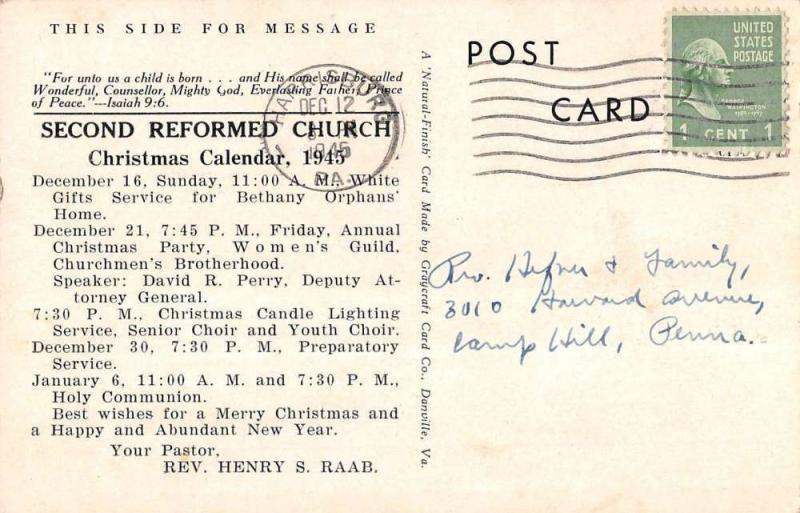 THIS SIDE FOR MESSAGE
"For unto us a child is born . . . and His name shall be called
Wonderful, Counsellor, Mighty God, Everlasting Father, Prince
of Peace."—Isaiah 9:6.
SECOND REFORMED CHURCH
Christmas Calendar, 1945
December 16, Sunday, 11:00 A. M., White
Gifts Service for Bethany Orphans'
Home.
December 21, 7:45 P. M., Friday, Annual
Christmas Party, Women's Guild,
Churchmen's Brotherhood.
Speaker: David R. Perry, Deputy At-
torney General.
7:30 P. M., Christmas Candle Lighting
Service, Senior Choir and Youth Choir.
December 30, 7:30 P. M., Preparatory
Service.
January 6, 11:00 A. M. and 7:30 P. M.,
Holy Communion.
Best wishes for a Merry Christmas and
a Happy and Abundant New Year.
Your Pastor,
REV. HENRY S. RAAB.
HARRISBURG
DEC 12
1945
PA.
A 'Natural-Finish' Card Made by Graycraft Card Co., Danville, Va.
POST
CARD
UNITED
STATES
POSTAGE
GEORGE
WASHINGTON
1 CENT 1
Rev. Hefner & Family,
3010 Harvard Avenue,
Camp Hill, Penna.